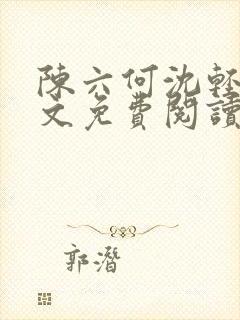 陳六何沈輕
文免費閱讀
郭潛